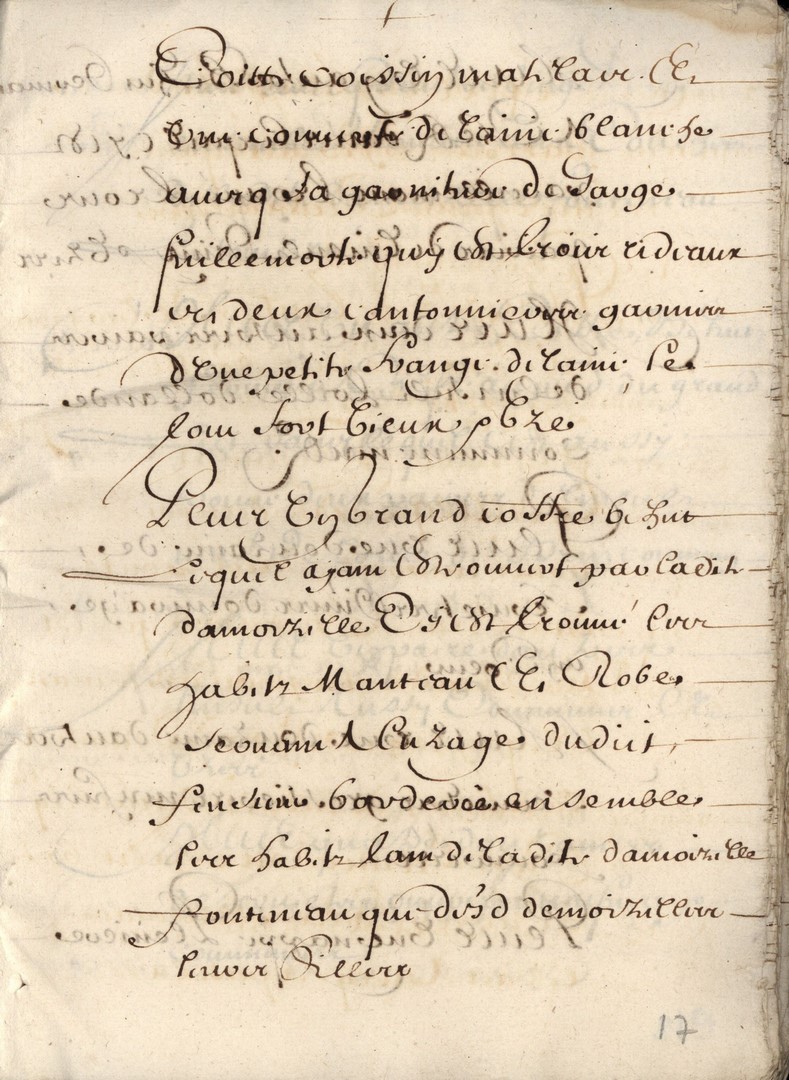 Coitte coissin mathlair Et
Une couverte de laine blanche
avecq sa garniture de sarge
fuillemorte quy est trois rideaux
et deux cantonnieres garnies
d'une petite frange de laine le
tout fort vieux
Plus Un grand coffre bahut
lequel ayant Est ouvert par ladite
damoizelle Est trouvé les
habitz Manteau Et Robe
servant A l'uzage dudit
feu sieur ensemble
les habitz tant de ladite damoizelle
que desd demoizelles
leurs filles
17